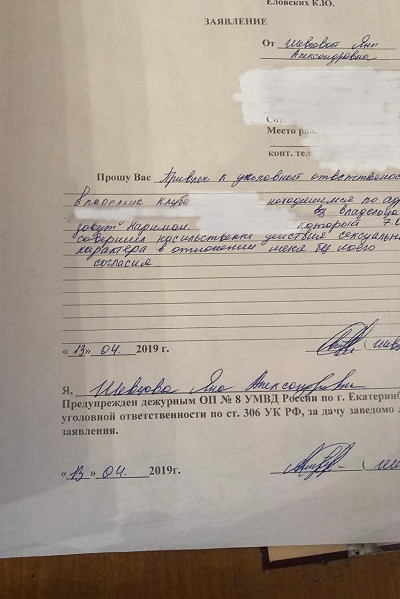 Еловских К.Ю.
ЗАЯВЛЕНИЕ
От Шевцовой Яны
Александровна
Сот.
Место раб.
конт. тел
Прошу Вас Привлеч к уголовной ответственнос
Владельца Клуба находившемся по ад
владельца
зовут Кариман. который 7.0
совершил насильственне действия сексуально
характера в отношении меня без моего
согласия.
«13» 04. 2019 г.
Я, Шевцова Яна Александровна
Предупрежден дежурным ОП № 8 УМВД России по г. Екатеринб
уголовной ответственности по ст. 306 УК РФ, за дачу заведомо
заявления.
«13» 04 2019г.